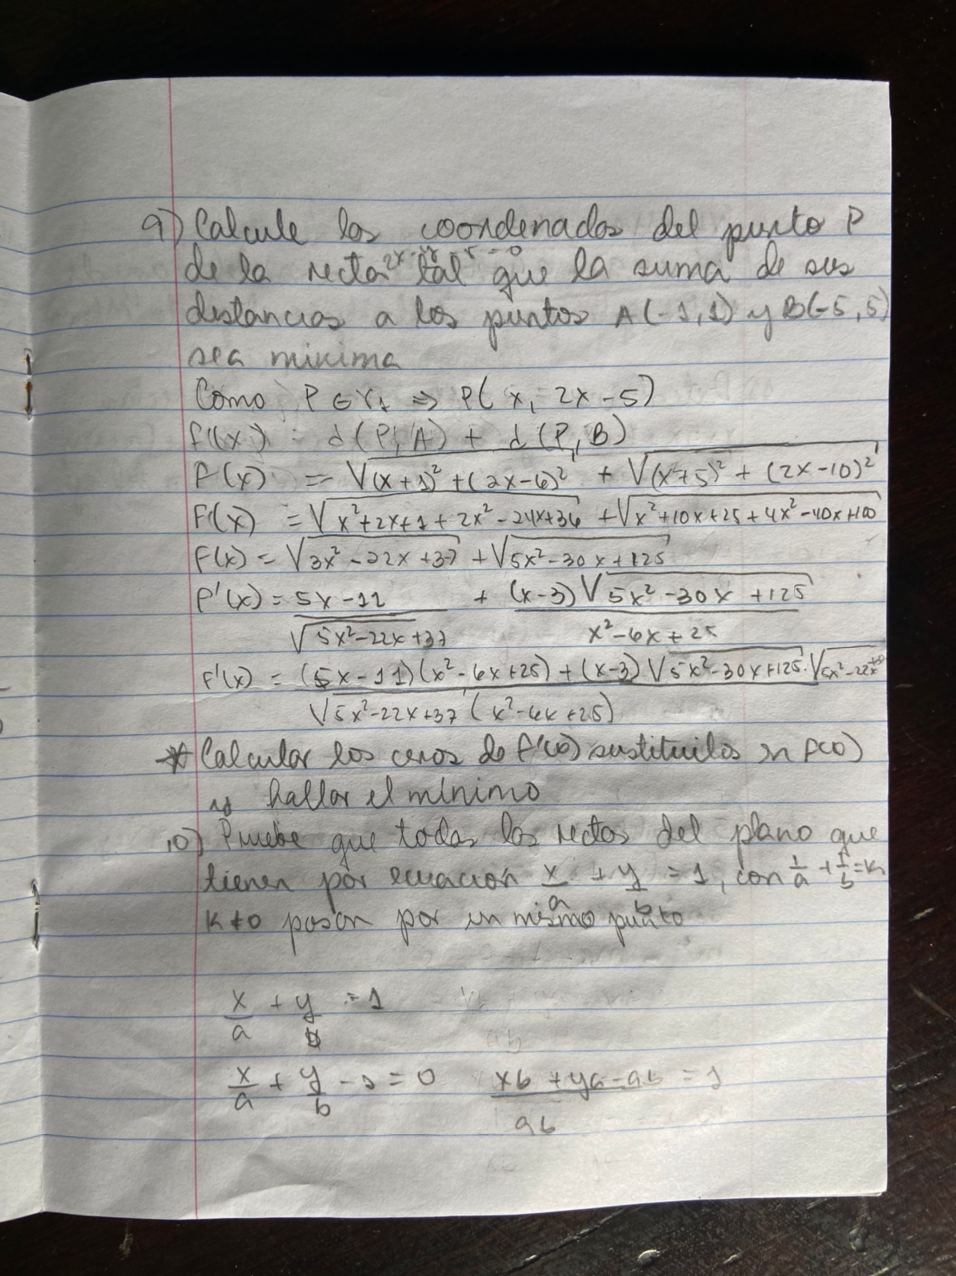 9) Calcule las coordenadas del punto P
de la recta 2x-y-5=0 tal que la suma de sus
distancias a los puntos A(-1,1) y B(-5,5)
sea minima
Como P ∈ r₁ ⇒ P(x, 2x-5)
f(x) = d(P,A) + d(P,B)
f(x) = √(x+1)² + (2x-6)² + √(x+5)² + (2x-10)²
f(x) = √x²+2x+1+2x²-24x+36 + √x²+10x+25+4x²-40x+100
f(x) = √3x²-22x+37 + √5x²-30x+125
f'(x) = 5x-11 / √5x²-22x+37 + (x-3)√5x²-30x+125 / x²-6x+25
f'(x) = (5x-11)(x²-6x+25) + (x-3)√5x²-30x+125 · √5x²-22x / √5x²-22x+37 (x²-6x+25)
* Calcular los ceros de f'(0) sustituilos n f(0)
y hallar el mínimo
10) Pruebe que todas las rectas del plano que
tienen por ecuacion x/a + y/b = 1, con 1/a + 1/b = k
k≠0 pasan por un mismo punto
x/a + y/b = 1
x/a + y/b - 1 = 0    xb + ya - ab / ab = 1